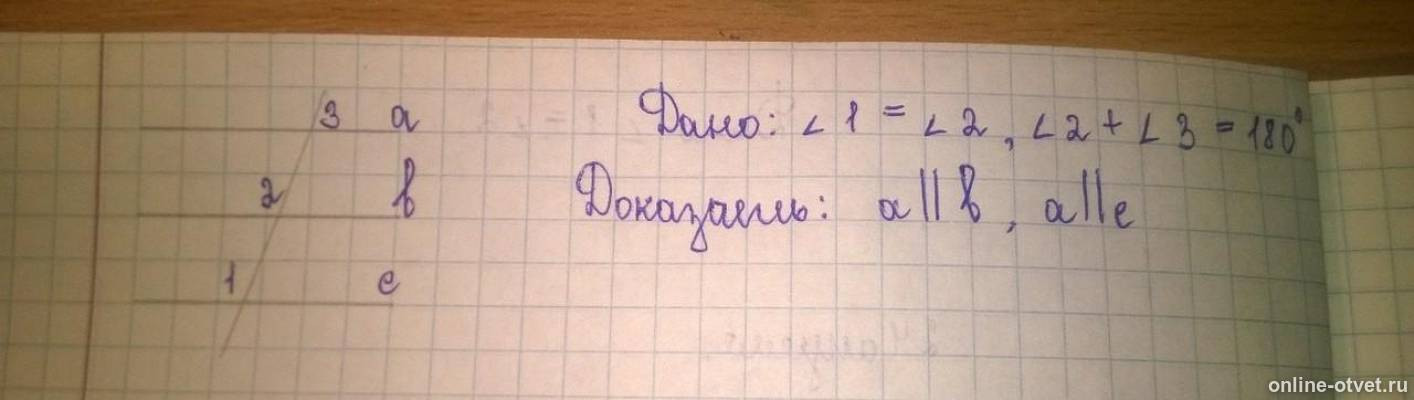 3 a
2 в
1 e
Дано: ∠1 = ∠2, ∠2 + ∠3 = 180°
Доказать: a || в, a || e
online-otvet.ru